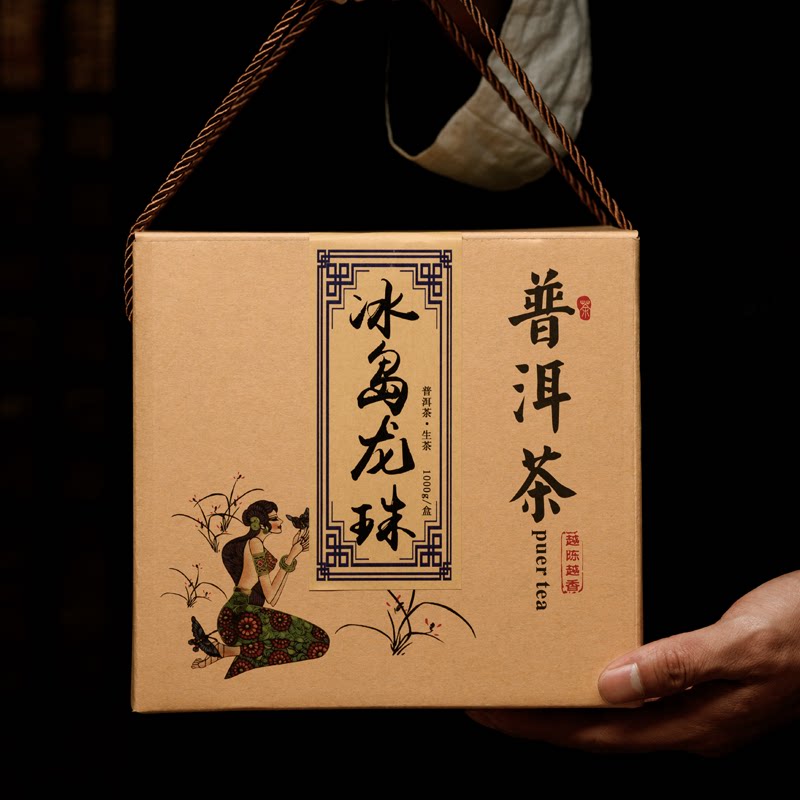 普洱茶
茶
puer tea
越陈越香
冰岛龙珠
普洱茶·生茶 1000g/盒